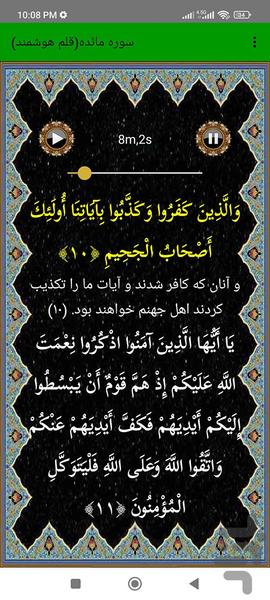 10:08 PM
سوره مائده(قلم هوشمند)
8m,2s
وَالَّذِينَ كَفَرُوا وَكَذَّبُوا بِآيَاتِنَا أُولَٰئِكَ
أَصْحَابُ الْجَحِيمِ ﴿۱۰﴾
و آنان که کافر شدند و آیات ما را تکذیب
کردند اهل جهنم خواهند بود. (۱۰)
يَا أَيُّهَا الَّذِينَ آمَنُوا اذْكُرُوا نِعْمَتَ
اللَّهِ عَلَيْكُمْ إِذْ هَمَّ قَوْمٌ أَنْ يَبْسُطُوا
إِلَيْكُمْ أَيْدِيَهُمْ فَكَفَّ أَيْدِيَهُمْ عَنْكُمْ
وَاتَّقُوا اللَّهَ وَعَلَى اللَّهِ فَلْيَتَوَكَّلِ
الْمُؤْمِنُونَ ﴿۱۱﴾